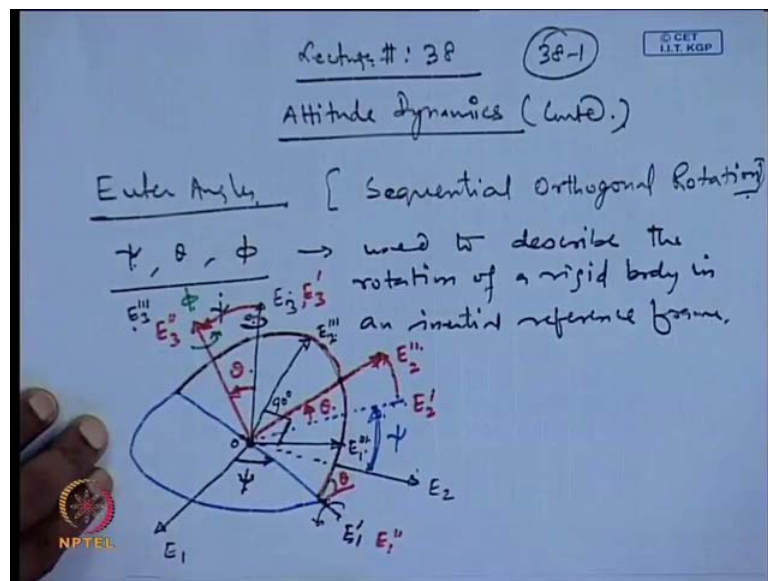 Lecture #: 38
38-1
© CET
I.I.T. KGP
Attitude Dynamics (Contd.)
Euler Angles [Sequential Orthogonal Rotation]
ψ, θ, φ → used to describe the
rotation of a rigid body in
an inertial reference frame.
E3'''
φ
ψ̇
E3, E3'
E3''
E2'''
E2''
θ
θ
90°
E2'
O
E1'''
ψ
ψ
θ
E2
E1
E1' E1''
NPTEL